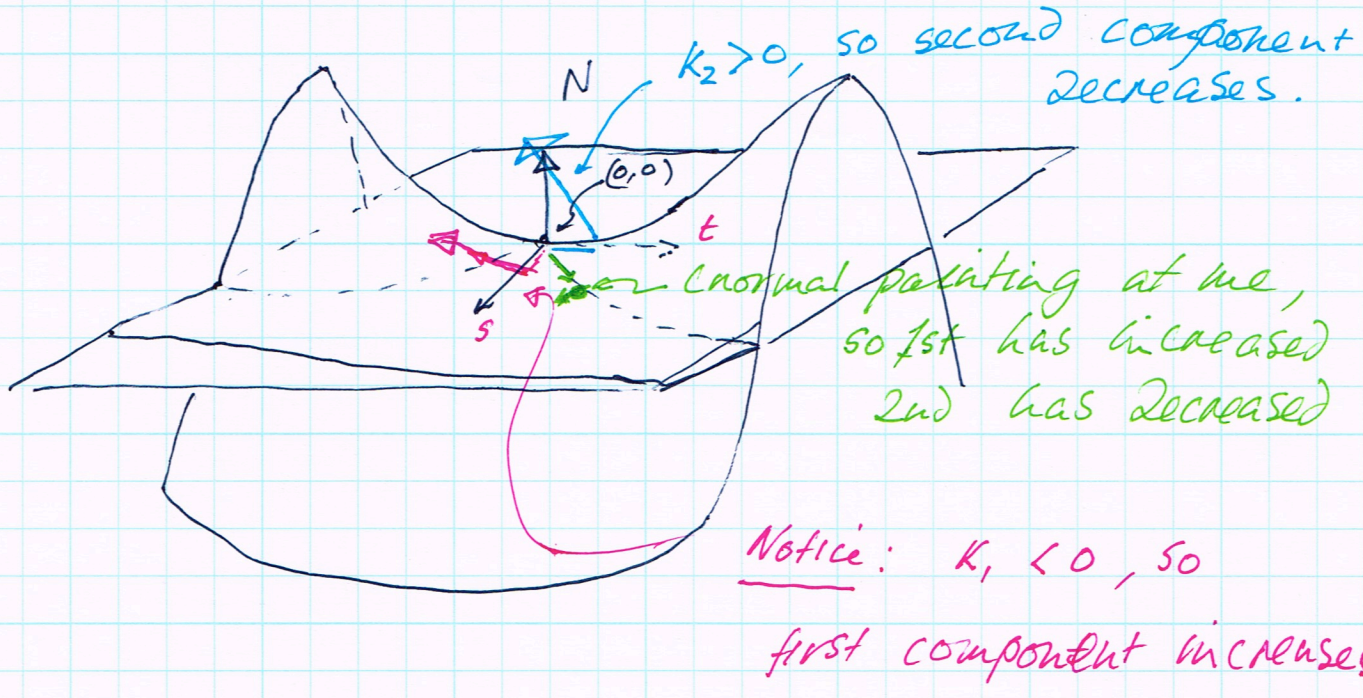 K₂>0, so second component
decreases.
N
(0,0)
t
(normal pointing at me,
s
so 1st has increased
2nd has decreased
Notice: K₁ <0, so
first component increases